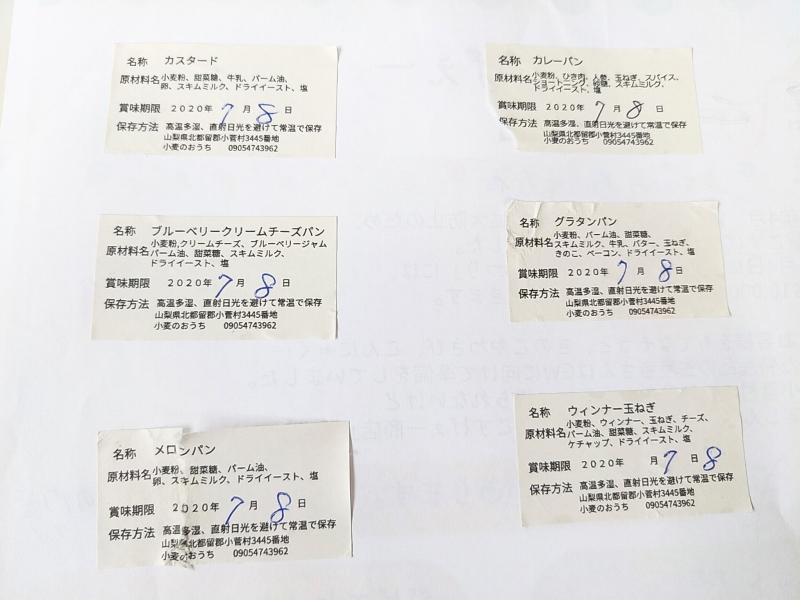 名称 カスタード
原材料名 小麦粉、甜菜糖、牛乳、パーム油、
卵、スキムミルク、ドライイースト、塩
賞味期限 2020年 7月 8日
保存方法 高温多湿、直射日光を避けて常温で保存
山梨県北都留郡小菅村3445番地
小麦のおうち 09054743962
名称 カレーパン
原材料名 小麦粉、ひき肉、人参、玉ねぎ、スパイス、
ショートニング、砂糖、スキムミルク、
ドライイースト、塩
賞味期限 2020年 7月 8日
保存方法 高温多湿、直射日光を避けて常温で保存
山梨県北都留郡小菅村3445番地
小麦のおうち 09054743962
名称 ブルーベリークリームチーズパン
原材料名 小麦粉,クリームチーズ、ブルーベリージャム
パーム油、甜菜糖、スキムミルク、
ドライイースト、塩
賞味期限 2020年 7月 8日
保存方法 高温多湿、直射日光を避けて常温で保存
山梨県北都留郡小菅村3445番地
小麦のおうち 09054743962
名称 グラタンパン
原材料名 小麦粉、パーム油、甜菜糖、
スキムミルク、牛乳、バター、玉ねぎ、
きのこ、ベーコン、ドライイースト、塩
賞味期限 2020年 7月 8日
保存方法 高温多湿、直射日光を避けて常温で保存
山梨県北都留郡小菅村3445番地
小麦のおうち 09054743962
名称 メロンパン
原材料名 小麦粉、甜菜糖、パーム油、
卵、スキムミルク、ドライイースト、塩
賞味期限 2020年 7月 8日
保存方法 高温多湿、直射日光を避けて常温で保存
山梨県北都留郡小菅村3445番地
小麦のおうち 09054743962
名称 ウィンナー玉ねぎ
原材料名 小麦粉、ウィンナー、玉ねぎ、チーズ、
パーム油、甜菜糖、スキムミルク、
ケチャップ、ドライイースト、塩
賞味期限 2020年 月7 日8
保存方法 高温多湿、直射日光を避けて常温で保存
山梨県北都留郡小菅村3445番地
小麦のおうち 09054743962